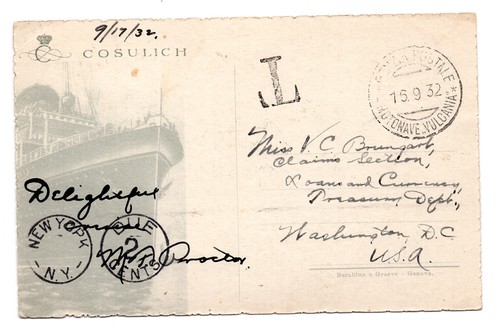 9/17/32.
COSULICH
T
POSTALE
16.9.32
MOTONAVE VULCANIA
Miss V. C.
Claims Section,
Loans and Currency,
Treasury Dept.,
Washington D.C
U.S.A.
Delightful
Proctor.
NEW YORK
N.Y.
DUE
2
CENTS
Barabino e Graeve - Genova.